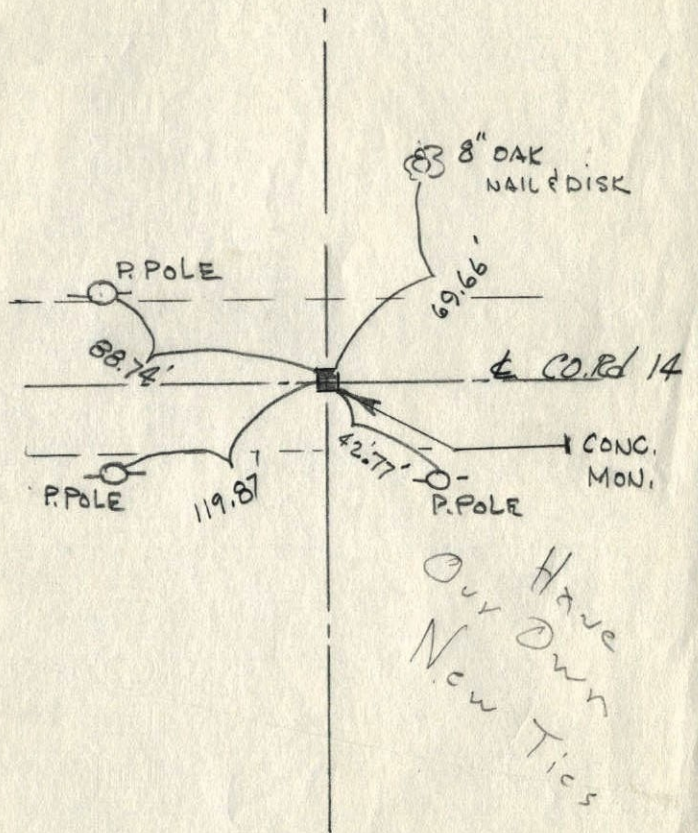 8" OAK
NAIL & DISK
P. POLE
69.66'
88.74'
℄ CO. Rd 14
42.77'
CONC.
MON.
P. POLE
119.87'
P. POLE
Have
Our Own
New Ties